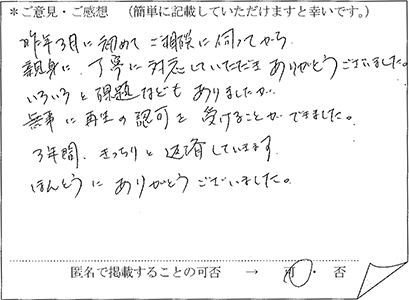 ＊ご意見・ご感想　（簡単に記載していただけますと幸いです。）
昨年3月に初めてご相談に伺ってから
親身に、丁寧に対応していただきありがとうございました。
いろいろと課題などもありましたが、
無事に再生の認可を受けることができました。
3年間、きっちりと返済していきます。
ほんとうにありがとうございました。
匿名で掲載することの可否　→　可・否